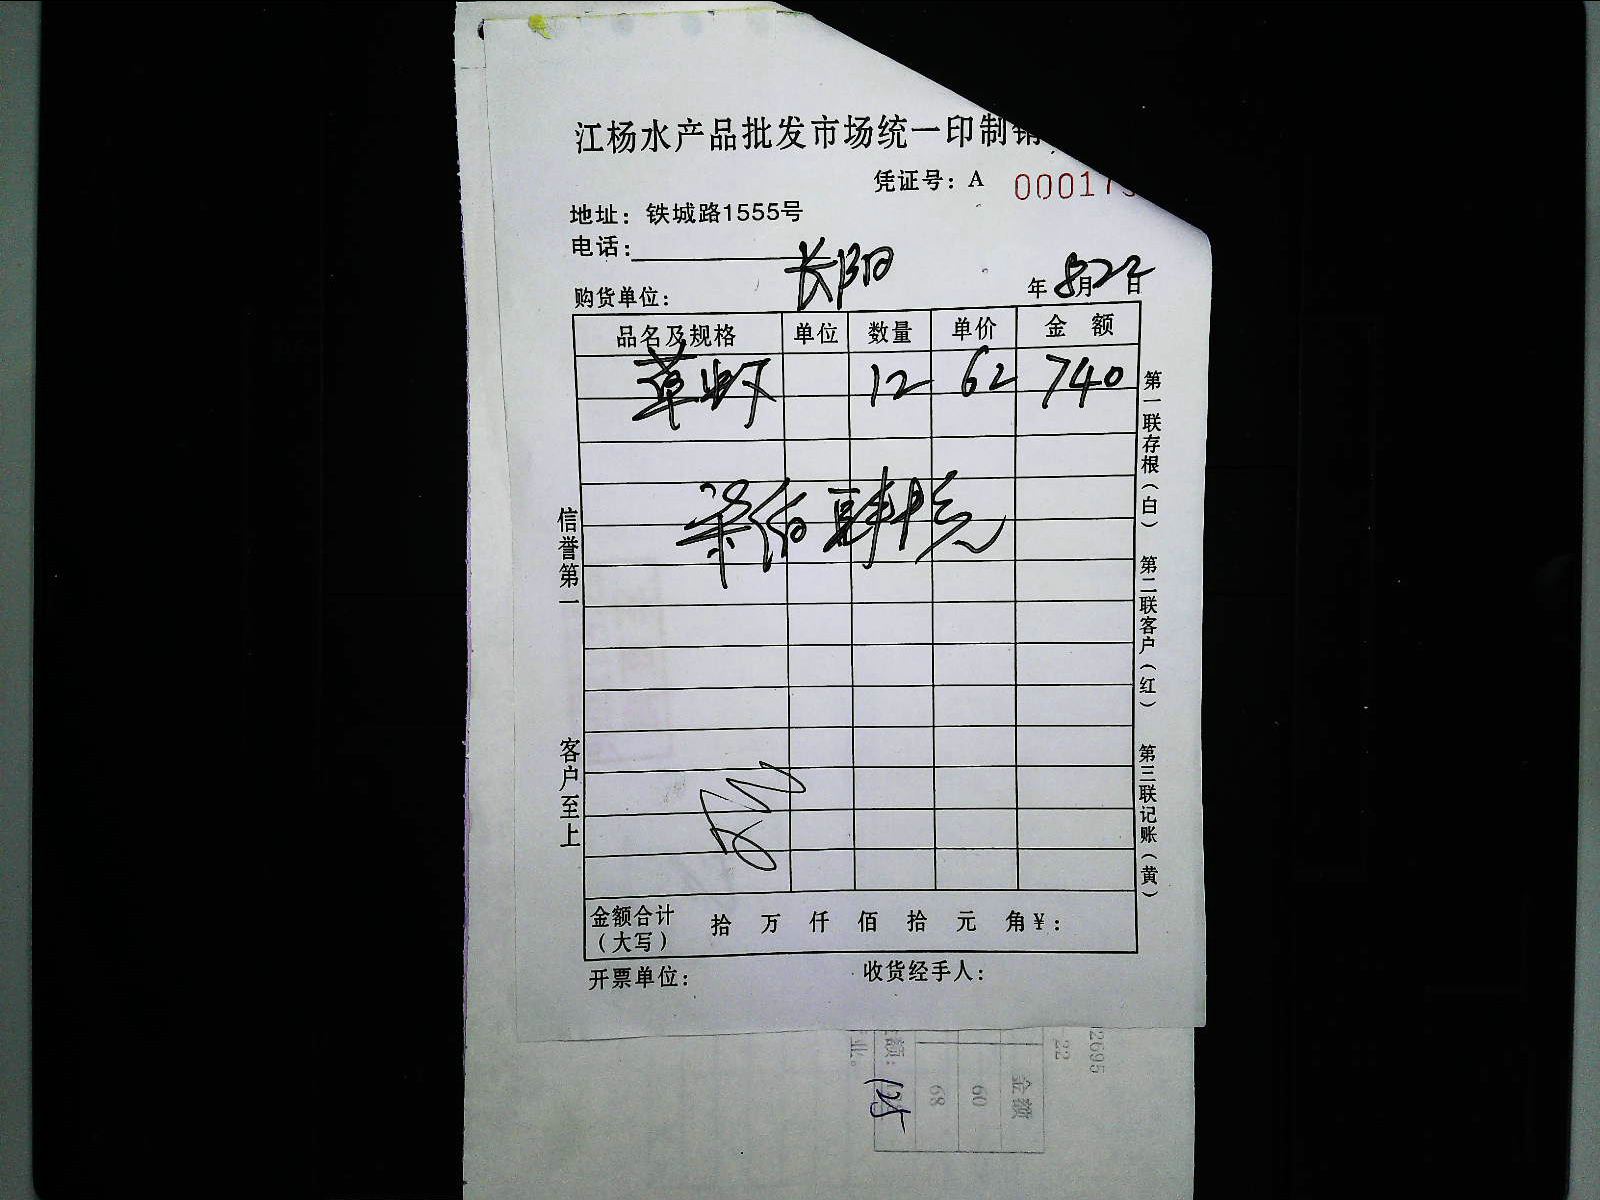 江杨水产品批发市场统一印制销
凭证号：A 00017
地址：铁城路1555号
电话：
购货单位： 长阳 年 8月22日
品名及规格 单位 数量 单价 金额
草虾 12 62 740
柒佰肆十元
金额合计（大写） 拾 万 仟 佰 拾 元 角 ¥：
开票单位： 收货经手人：
信誉第一 客户至上
第一联存根（白） 第二联客户（红） 第三联记账（黄）
2695
22
金额
60
68
额：
125
业。